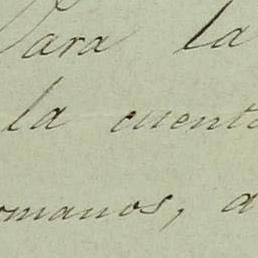 Para la
la cuenta
omanos, a